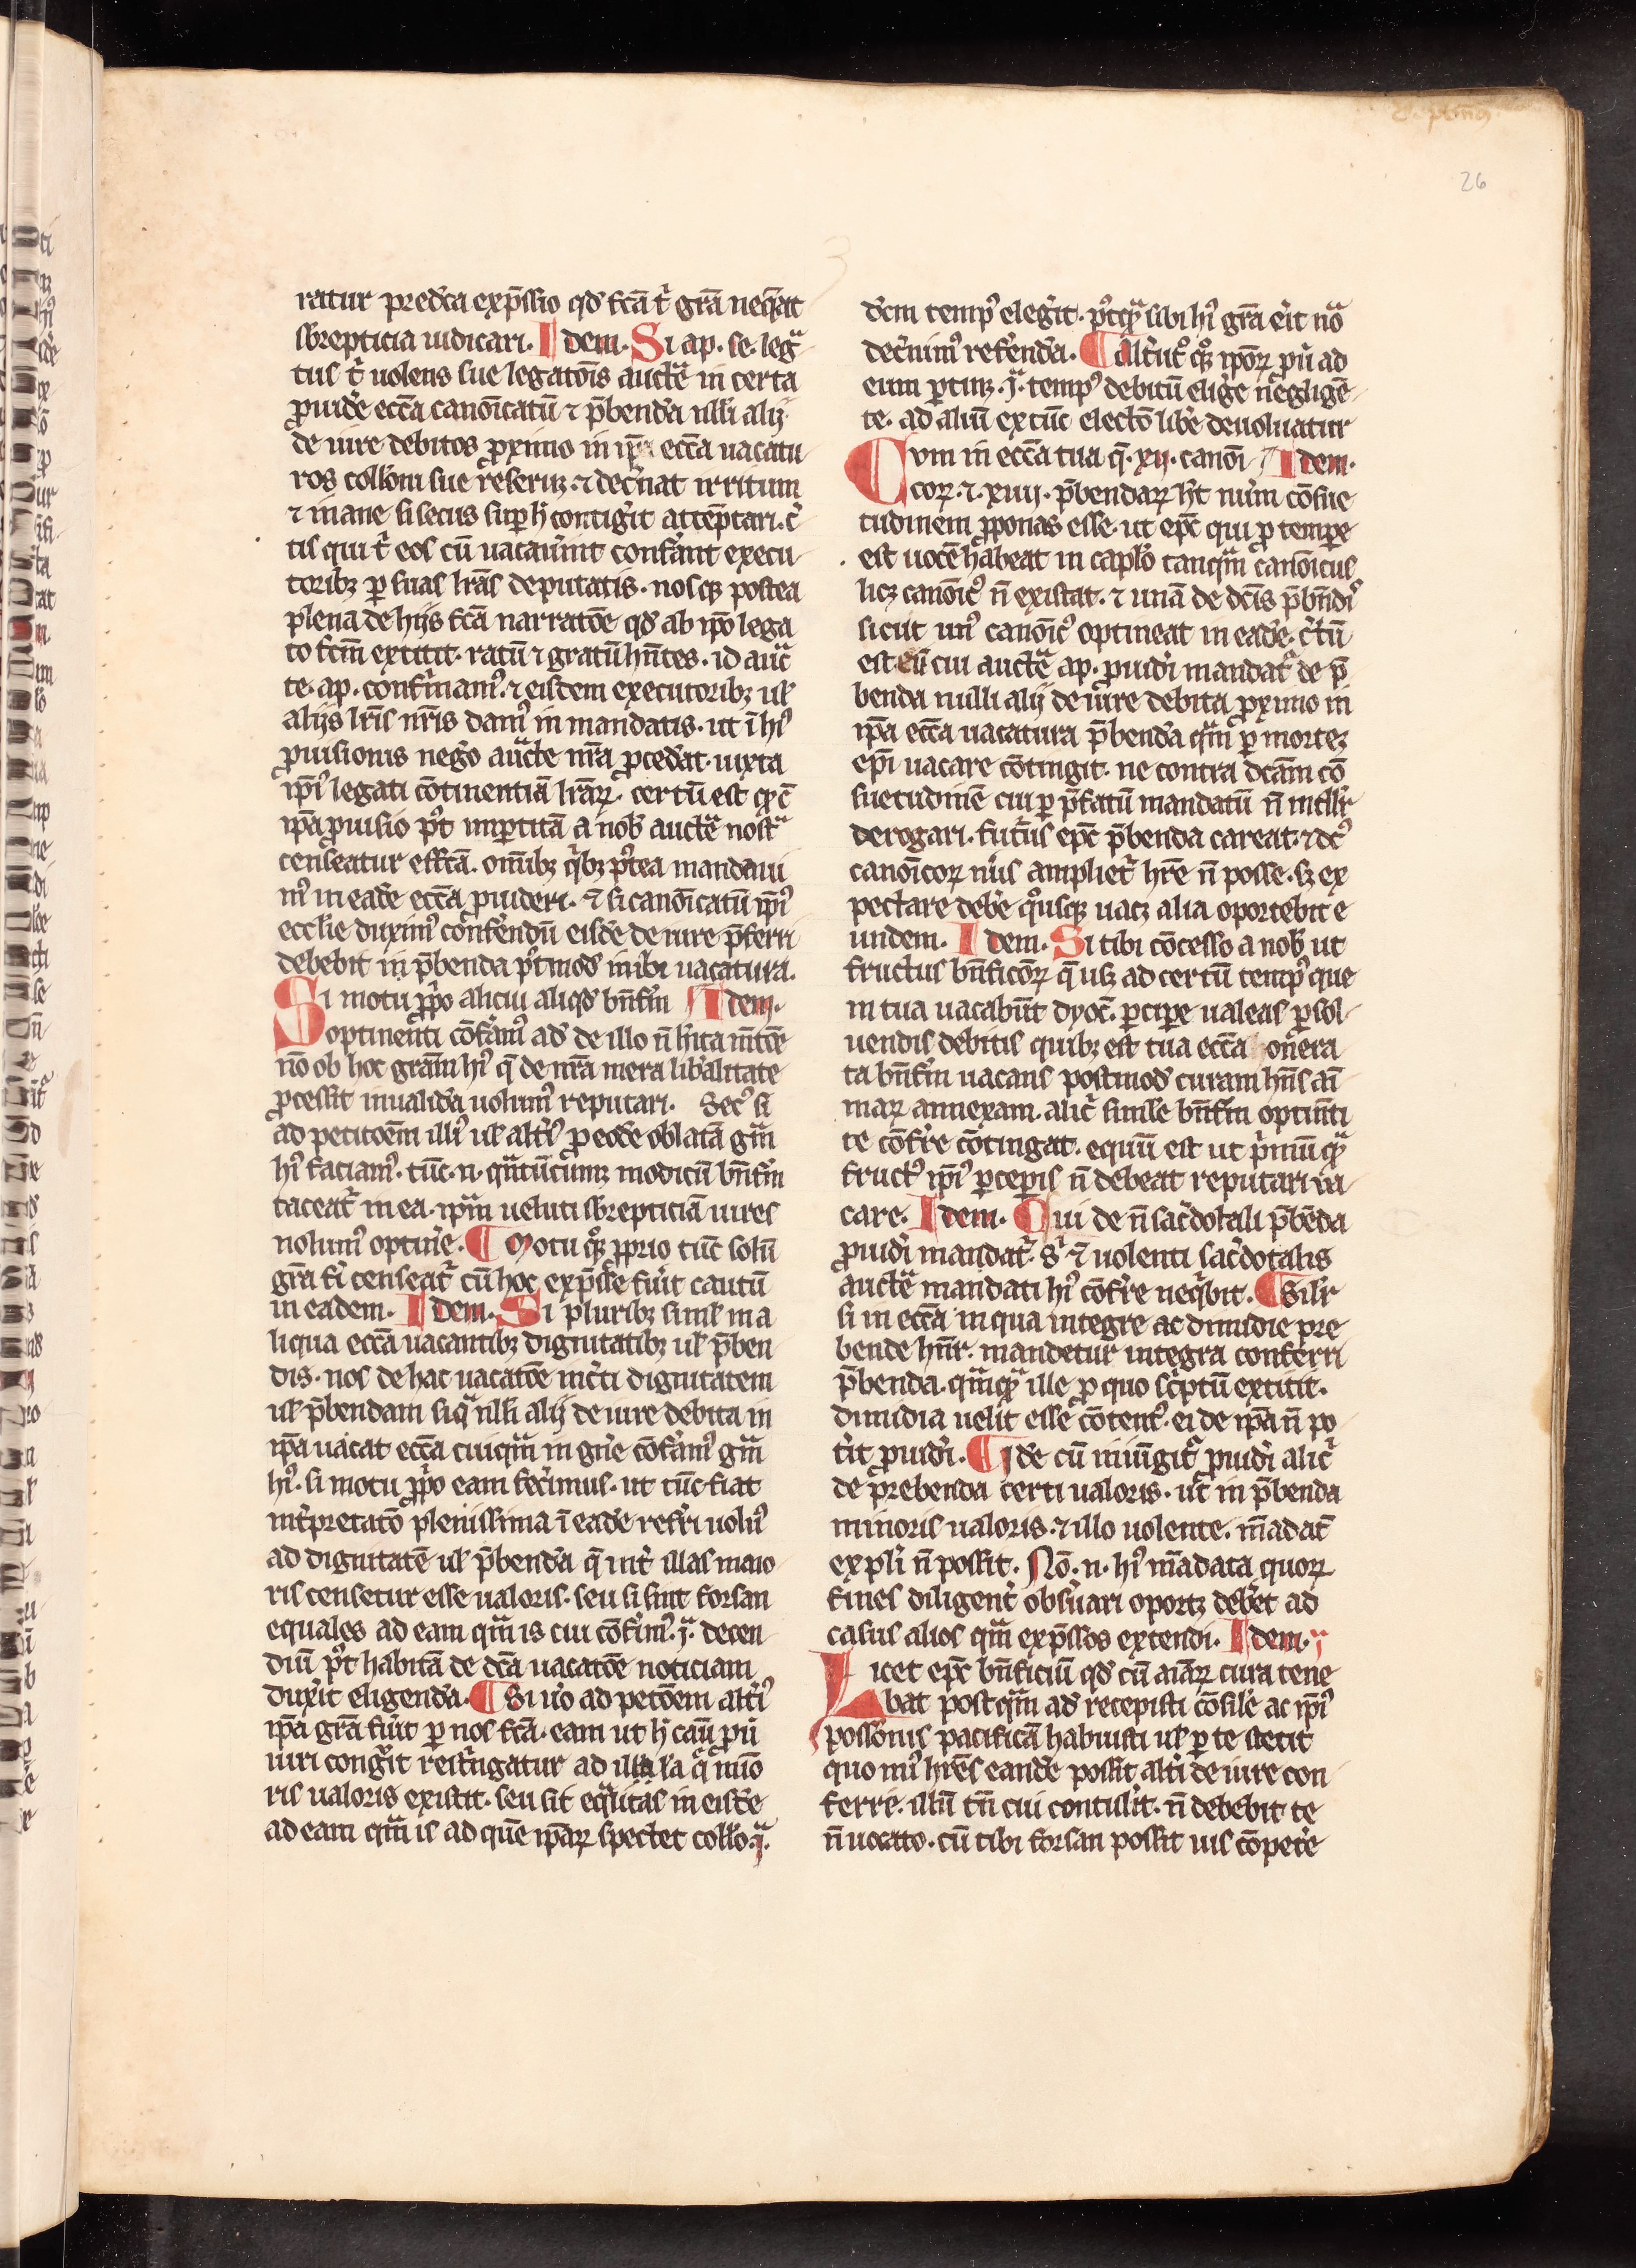 26
ratur predc̄a exp̄ssio qd̓ fc̄a t̓ gr̄a neq̄at
sbrepticia iudicari. Idem. Si ap. se. legᵃ
tus t̓ uolens sue legatōis auctē in certa
ꝓuidē ecc̄a canōicatū ⁊ p̄bendā nll̓i alij
de iure debitos ꝓximo in ip̄a ecc̄a uacatu
ros coll̓oni sue reseruꝫ ⁊ dec̓nat irritum
⁊ inane si secus suꝑ h̓ contigit attēptari. c̓
tis qui t̓ eos cū uacauīnt conferant execu
toribꝫ ꝑ suas lr̄as deputatis. nosqꝫ postea
plenā de hijs fc̄a narratōe qd̓ ab ip̄o lega
to fc̄m extitit. ratū ⁊ gratū hn̄tes. id auc̄
te. ap. confirmam᷒. ⁊ eisdem executoribꝫ ul̓
alijs lr̄is nr̄is dam᷒ in mandatis. ut ī h᷒i
ꝓuisionis negō auctē nr̄a ꝓcedāt. iuxta
ip̄i᷒ legati cōtinentiā lr̄aꝝ. certū est ꝙ c̄
ip̄a ꝓuisio p᷒t imꝑtitā a nob̓ auctē nostᵃ
censeatur effc̄a. om̄ibꝫ q̓bꝫ p᷒tea mandaui
m᷒ in eadē ecc̄a ꝓuideri. ⁊ si canōicatū ip̄i᷒
eccl̓ie duxim᷒ conferendū eisdē de iure p̄ferri
debebit in p̄benda p᷒tmod̓ inibi uacatura.
Si motu ꝓp̓o alicui aliqd̓ bn̄fm̄ Idem.
optinenti cōferam᷒ ad̓ de illo n̄ h̓ita mt̄ōe
nō ob hoc grām h᷒i q̄ de nr̄a mera lib̓alitate
ꝓcessit inualidā uolum᷒ reputari. Sec᷒ si
ad petitōem illi᷒ ul̓ alt̓i᷒ ꝓ eodē oblatā gr̄m
h᷒i faciam᷒. tūc. n. qn̄tūcumꝫ modicū bn̄fm̄
taceat̓ in ea. ip̄m ueluti sbrepticiā uires
nolum᷒ optin̓e. ¶ Motu qͦꝫ ꝓprio tūc solū
gr̄a fi̓ censeat̓ cū hoc exp̄sse fu̓it cautū
in eadem. Idem. Si pluribꝫ siml̓ in a
liqua ecc̄a uacantibꝫ dignitatibꝫ ul̓ p̄ben
dis. nos de hac uacatōe inc̓ti dignitatem
ul̓ p̄bendam siqᵃ nll̓i alij de iure debita in
ip̄a uacat ecc̄a cuiqᵃm in gn̓e cōferam᷒ gr̄m
h᷒i. si motu ꝓp̓o eam fecimus. ut tūc fiat
int̓pretatō plenissima ī eadē ref̓ri uolu᷒
ad dignitatē ul̓ p̄bendā q̄ int̓ illas maio
ris censetur esse ualoris. seu si sint forsan
equales ad eam qᵃm is cui cōf̓im᷒. jᵃ. decen
diū p᷒t habitā de dc̄a uacatōe noticiam
duxit eligendā. ¶ Si uͦo ad petōem alt̓i᷒
ip̄a gr̄a fu̓it ꝑ nos fc̄a. eam ut h̓ cau̓ pū
iuri cong̓it rest̓ngatur ad illa q̄ mīo
ris ualoris existit. seu sit eqᵃlitas in eisdē
ad eam qᵃm is ad quē ip̄aꝝ spectet coll̓o. jᵃ.
dc̄m temp᷒ elegit. p᷒tꝙᵃ sibi h᷒i gr̄a erit nōᵃ
dec̓nim᷒ referendā. ¶ Alt̓ut͛ qͦꝫ ip̄oꝝ pū ad
eum ꝑtinꝫ. jᵃ. temp᷒ debitū elige neggligē
te. ad aliū extūc electō libē deuoluatur
Cum in ecc̄a tua q̄. xij. canōi Idem.
coꝝ. ⁊. xiiij. p̄bendaꝝ h̓t num̓ cōsue
tudinem ꝓponas esse. ut ep̄c qui ꝓ tempe
est uocē habeat in capl̓o tanqᵃm canōicus
licꝫ canōic᷒ n̄ existat. ⁊ unā de dc̄is p̄bn̄di᷒
sicut un᷒ canōic᷒ optineat in eadē. c̓tū
est eū cui auctē ap. ꝓuid̓i mandat̓ de p̄
benda nulli alij de iure debita ꝓximo in
ip̄a ecc̄a uacatura p̄bendā qᵃm ꝑ morteꝫ
ep̄i uacare cōtingit. ne contra dc̄am cō
suetudinē cui ꝑ p̄fatū mandatū n̄ intll̓r
derogari. futurus ep̄c p̄benda careat. ⁊ dc᷒
canōicoꝝ nus ampliet̓ hr̄e n̄ posse. sꝫ ex
pectare debē qͦusqꝫ uacꝫ alia oportebit e
undem. Idem. Si tibi cōcesso a nob̓ ut
fructus bn̄ficoꝝ q̄ usꝫ ad certū temp᷒ que
in tua uacabūt dyoc̄. ꝑcipe ualeas ꝑsol
uendis debitis quibꝫ est tua ecc̄a onera
ta bn̄fm̄ uacans postmod̓ curam hn̄s ai
maꝝ annexam. alic̓ simile bn̄fm̄ optin̄ti
te cōf̓re cōtingat. equū est ut p̓miū ꝙᵃ
fruct᷒ ip̄i᷒ ꝑceꝑis n̄ debeat reputari ua
care. Idem. Qui de n̄ sac̓dotali p̄bēda
ꝓuid̓i mandat̓. sᷣ ⁊ uolenti sac̓dotalis
auctē mandati h᷒i cōf̓re neq̓bit. ¶ Sil̓r
si in ecc̄a in qua integre ac dimidie pre
bende hn̄r. mandetur integra conferri
p̄benda. qᵃmꝙᵃ ille ꝓ quo sc̓ptū extitit.
dimidia uelit esse cōtent᷒. ei de ip̄a n̄ po
t̓it ꝓuid̓i. ¶ Idē cū iniūgit̓ ꝓuid̓i alic̓
de prebenda certi ualoris. ut̓ in p̄benda
minoris ualoris. ⁊ illo uolente. m̄adat̄
expl̓i n̄ possit. Nō. n. h᷒i m̄adata quoꝝ
fines diligent̓ obs̓uari oportꝫ debet ad
casus alios qᵃm exp̄ssos extendi. Idem.
Licet ep̄c bn̄ficiū qd̓ cū aiāꝝ cura tene
bat postqᵃm ad̓ recepisti cōsile ac ip̄i᷒
possōnis pacificā habuisti ul̓ ꝑ te stetit
quo mi᷒ hr̄es eandē possit alt̓i de iure con
ferre. illū tn̄ cui contulit. n̄ debebit te
n̄ uocato. cū tibi forsan possit ius cōpete